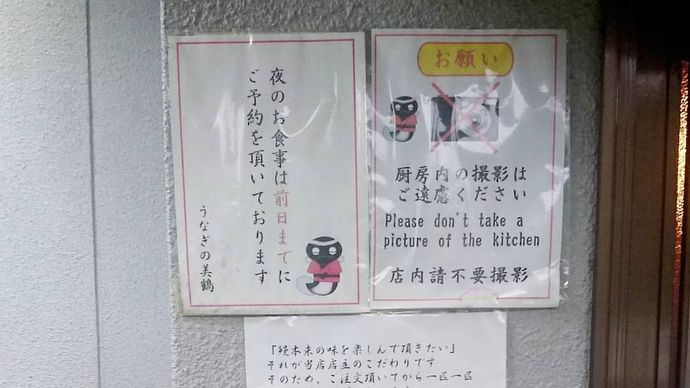 夜のお食事は前日までに
ご予約を頂いております
うなぎの美鶴
お願い
厨房内の撮影は
ご遠慮ください
Please don't take a
picture of the kitchen
店内請不要撮影
本来の味を楽しんで頂きたい」
それが当店店主のこだわりです
そのため、ご注文頂いてから一匹一匹